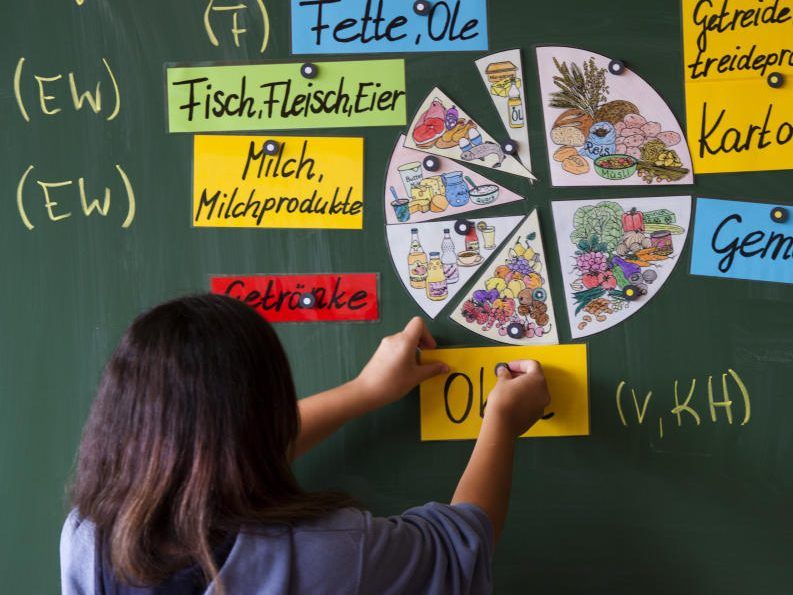 (F)
Fette,Öle
Getreide
treidepr
(EW)
Fisch,Fleisch,Eier
ÖL
Reis
MÜSLI
Karto
Milch,
Milchprodukte
Butter
(EW)
Gem
Getränke
(V,KH)